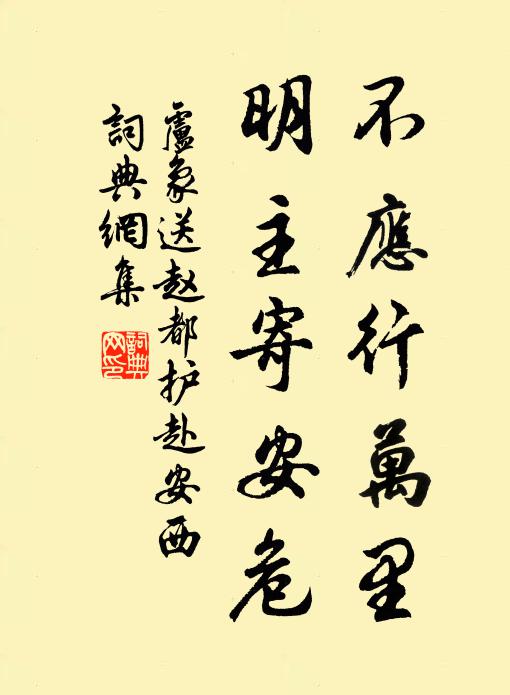 不應行萬里
明主寄安危
盧象送赵都护赴安西
詞典網集
詞典网印